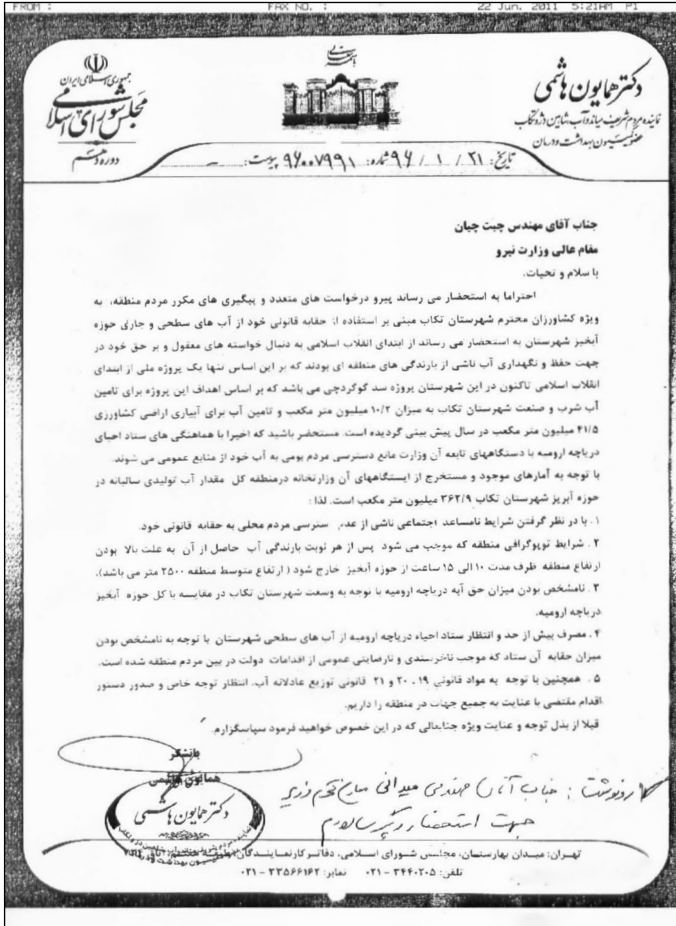 FROM : FAX NO. : 22 Jun. 2011 5:21AM P1
جمهوری اسلامی ایران
مجلس شورای اسلامی
دوره دهم
باسمه تعالی
دکتر همایون هاشمی
نماینده مردم شریف میاندوآب، شاهین دژ و تکاب
عضو کمیسیون بهداشت و درمان
تاریخ: ۹۶ / ۱ / ۲۱ شماره: ۹۶۰۰۷۹۹۱ پیوست: ـ
جناب آقای مهندس چیت چیان
مقام عالی وزارت نیرو
با سلام و تحیات،
احتراما به استحضار می رساند پیرو درخواست های متعدد و پیگیری های مکرر مردم منطقه، به
ویژه کشاورزان محترم شهرستان تکاب مبنی بر استفاده از حقابه قانونی خود از آب های سطحی و جاری حوزه
آبخیز شهرستان به استحضار می رساند از ابتدای انقلاب اسلامی به دنبال خواسته های معقول و بر حق خود در
جهت حفظ و نگهداری آب ناشی از بارندگی های منطقه ای بودند که بر این اساس تنها یک پروژه ملی از ابتدای
انقلاب اسلامی تاکنون در این شهرستان پروژه سد گوگردچی می باشد که بر اساس اهداف این پروژه برای تامین
آب شرب و صنعت شهرستان تکاب به میزان ۱۰/۲ میلیون متر مکعب و تامین آب برای آبیاری اراضی کشاورزی
۴۱/۵ میلیون متر مکعب در سال پیش بینی گردیده است. مستحضر باشید که اخیرا با هماهنگی های ستاد احیای
دریاچه ارومیه با دستگاههای تابعه آن وزارت مانع دسترسی مردم بومی به آب خود از منابع عمومی می شوند.
با توجه به آمارهای موجود و مستخرج از ایستگاههای آن وزارتخانه درمنطقه کل مقدار آب تولیدی سالیانه در
حوزه آبریز شهرستان تکاب ۳۶۲/۹ میلیون متر مکعب است. لذا :
۱. با در نظر گرفتن شرایط نامساعد اجتماعی ناشی از عدم سترسی مردم محلی به حقابه قانونی خود.
۲. شرایط توپوگرافی منطقه که موجب می شود پس از هر نوبت بارندگی آب حاصل از آن به علت بالا بودن
ارتفاع منطقه ظرف مدت ۱۰ الی ۱۵ ساعت از حوزه آبخیز خارج شود ( ارتفاع متوسط منطقه ۲۵۰۰ متر می باشد).
۳. نامشخص بودن میزان حق آبه دریاچه ارومیه با توجه به وسعت شهرستان تکاب در مقایسه با کل حوزه آبخیز
دریاچه ارومیه.
۴. مصرف بیش از حد و انتظار ستاد احیاء دریاچه ارومیه از آب های سطحی شهرستان با توجه به نامشخص بودن
میزان حقابه آن ستاد که موجب ناخرسندی و نارضایتی عمومی از اقدامات دولت در بین مردم منطقه شده است.
۵. همچنین با توجه به مواد قانونی ۱۹، ۲۰ و ۲۱ قانونی توزیع عادلانه آب، انتظار توجه خاص و صدور دستور
اقدام مقتضی با عنایت به جمیع جهات در منطقه را داریم.
قبلا از بذل توجه و عنایت ویژه جنابعالی که در این خصوص خواهید فرمود سپاسگزارم.
باتشکر
همایون هاشمی
دکتر همایون هاشمی
رونوشت : جناب آقای مهندس میدانی معاون محترم وزیر
جهت استحضار و پیگیری
تهـران: میـدان بهارستـان، مجلـس شـورای اسـلامی، دفاتـر کارنمـاینـدگان،
تلفن: ۳۳۴۴۰۲۰۵ – ۰۲۱ نمابر: ۳۳۵۶۶۱۶۲ – ۰۲۱